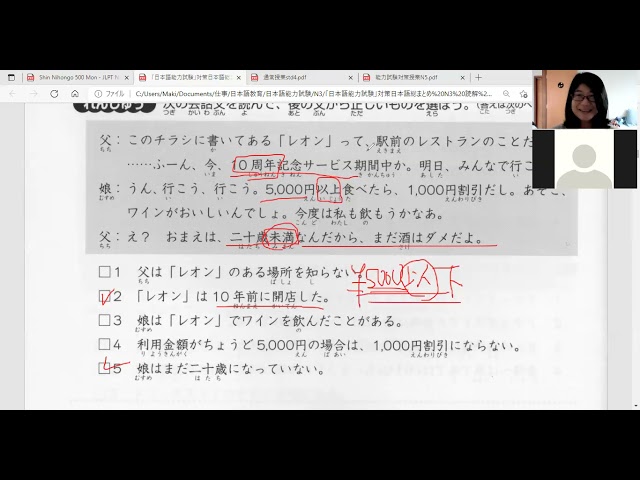 Shin Nihongo 500 Mon - JLPT N
「日本語能力試験」対策日本語総
通常授業std4.pdf
能力試験対策授業N5.pdf
ファイル | C:/Users/Maki/Documents/仕事/日本語教育/日本語能力試験/N3/「日本語能力試験」対策日本語総まとめ%20N3%20読解%2...
れんしゅう 次の会話文を読んで、後の文から正しいものを選ぼう。(答えは次のペ
父:このチラシに書いてある「レオン」って、駅前のレストランのことだ
……ふーん、今、10周年記念サービス期間中か。明日、みんなで行こ
娘:うん、行こう、行こう。5,000円以上食べたら、1,000円割引だし。あそこ、
ワインがおいしいんでしょ。今度は私も飲もうかなあ。
父:え? おまえは、二十歳未満なんだから、まだ酒はダメだよ。
□1 父は「レオン」のある場所を知らない
□2 「レオン」は10年前に開店した。
¥5000以下
□3 娘は「レオン」でワインを飲んだことがある。
□4 利用金額がちょうど5,000円の場合は、1,000円割引にならない。
□5 娘はまだ二十歳になっていない。